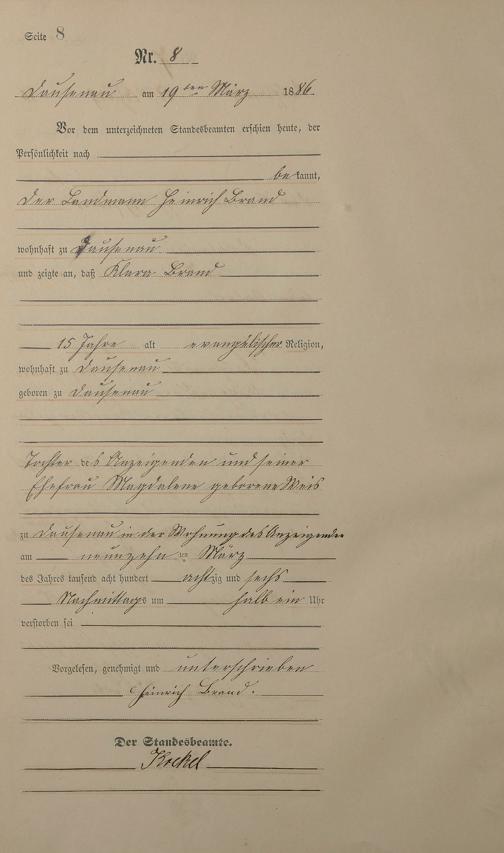 Seite 8
Nr. 8
Dausenau am 19ten März 1886
Vor dem unterzeichneten Standesbeamten erschien heute, der
Persönlichkeit nach
bekannt,
der Landmann Heinrich Brand
wohnhaft zu Dausenau
und zeigte an, daß Klara Brand
15 Jahre alt evangelischer Religion,
wohnhaft zu Dausenau
geboren zu Dausenau
Tochter des Anzeigenden und seiner
Ehefrau Magdalene geborene Weis
zu Dausenau in der Wohnung des Anzeigenden
am neunzehnten März
des Jahres tausend acht hundert achtzig und sechs
Nachmittags um halb ein Uhr
verstorben sei
Vorgelesen, genehmigt und unterschrieben
Heinrich Brand.
Der Standesbeamte.